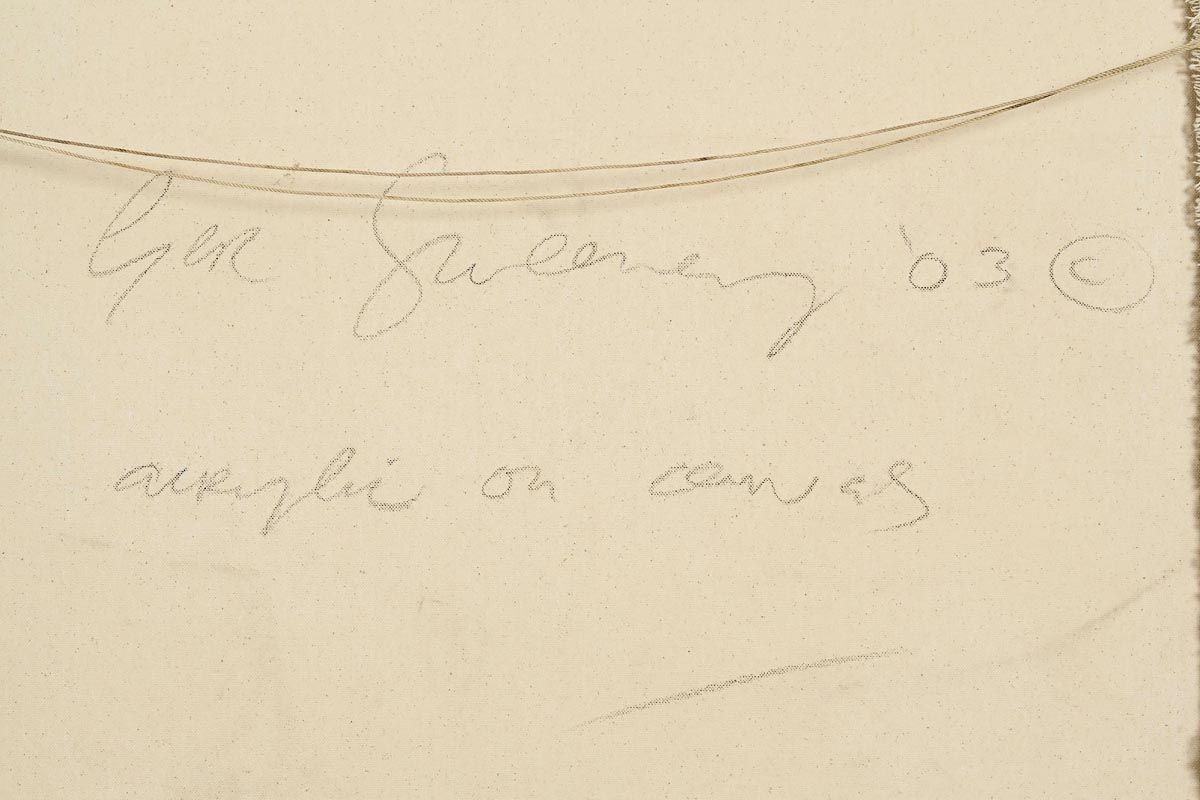 Ger Sweeney '03 ©
acrylic on canvas